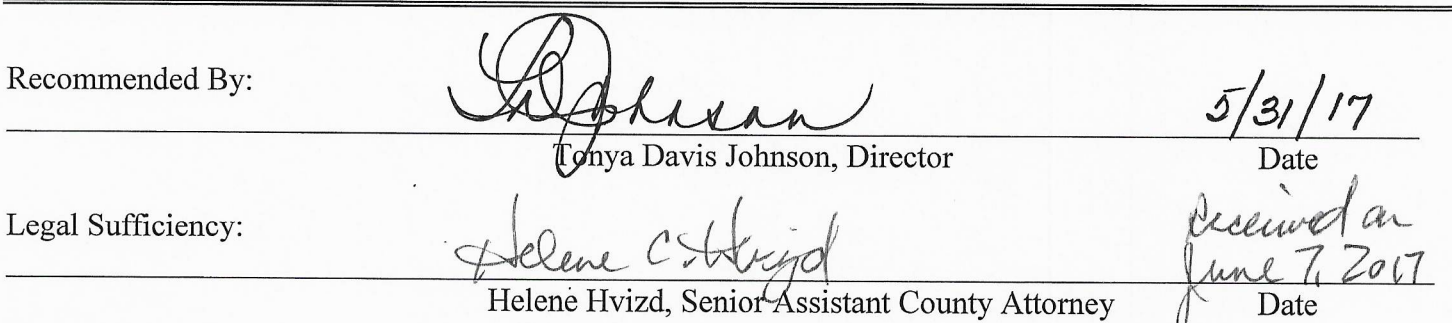 Recommended By:
TDJohnson 5/31/17
Tonya Davis Johnson, Director Date
Legal Sufficiency:
Helene C. Hvizd received on
June 7, 2017
Helene Hvizd, Senior Assistant County Attorney Date